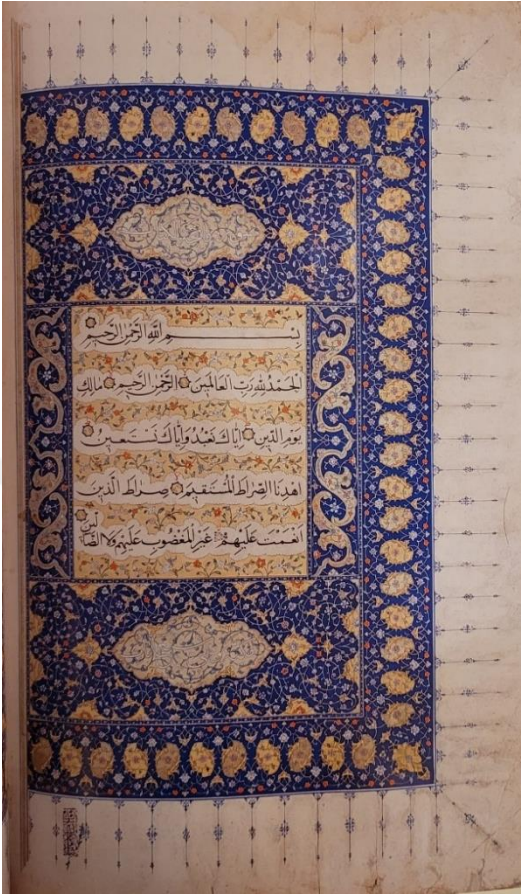 بِسْمِ اللَّهِ الرَّحْمٰنِ الرَّحِيمِ
الْحَمْدُ لِلَّهِ رَبِّ الْعَالَمِينَ الرَّحْمٰنِ الرَّحِيمِ مَالِكِ
يَوْمِ الدِّينِ اِيَّاكَ نَعْبُدُ وَاِيَّاكَ نَسْتَعِينُ
اهْدِنَا الصِّرَاطَ الْمُسْتَقِيمَ صِرَاطَ الَّذِينَ
اَنْعَمْتَ عَلَيْهِمْ غَيْرِ الْمَغْضُوبِ عَلَيْهِمْ وَلَا الضَّالِّينَ